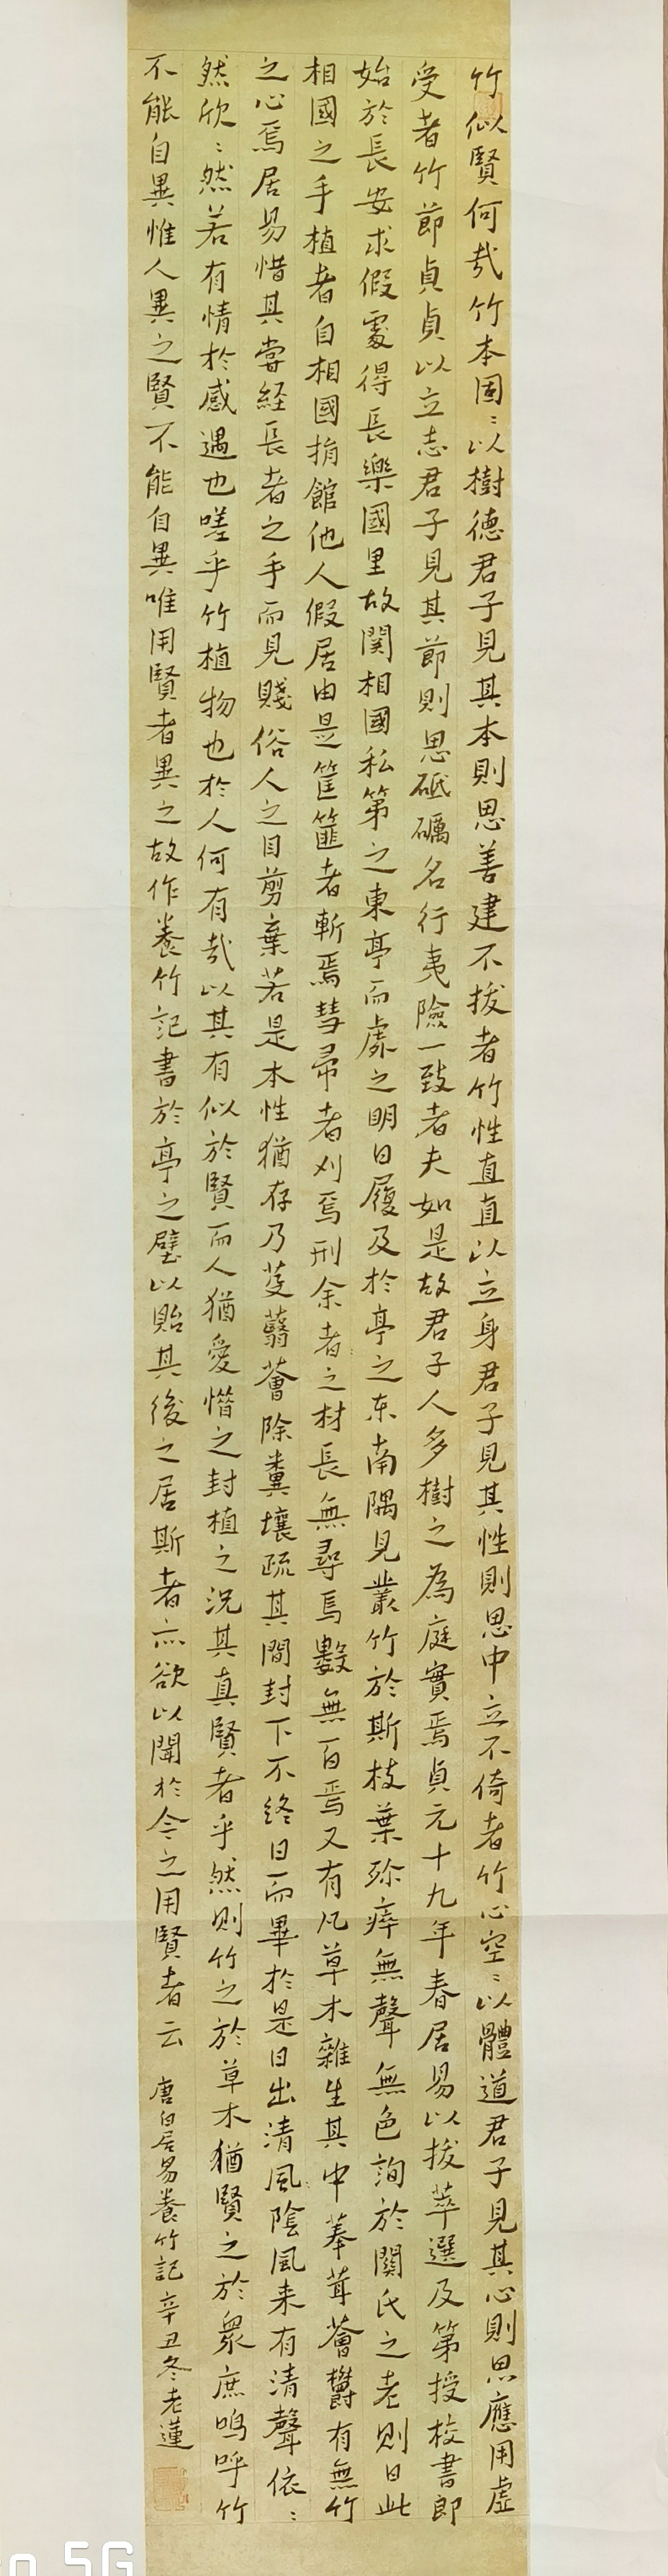 竹似賢何哉竹本固〻以樹德君子見其本則思善建不拔者竹性直直以立身君子見其性則思中立不倚者竹心空〻以體道君子見其心則思應用虛
受者竹節貞貞以立志君子見其節則思砥礪名行夷險一致者夫如是故君子人多樹之為庭實焉貞元十九年春居易以拔萃選及第授校書郎
始於長安求假處得長樂國里故関相國私第之東亭而處之明日履及於亭之东南隅見叢竹於斯枝葉殄瘁無聲無色詢於關氏之老則曰此
相國之手植者自相國捐館他人假居由是筐篚者斬焉彗帚者刈焉刑余者之材長無尋焉數無百焉又有凡草木雜生其中菶茸薈欝有無竹
之心焉居易惜其嘗経長者之手而見賤俗人之目剪棄若是本性猶存乃芟蘙薈除糞壤疏其間封下不终日而畢於是日出清風陰風来有清聲依〻
然欣〻然若有情於感遇也嗟乎竹植物也於人何有哉以其有似於賢而人猶愛惜之封植之況其真賢者乎然则竹之於草木猶賢之於衆庶鸣呼竹
不能自異惟人異之賢不能自異唯用賢者異之故作養竹記書於亭之壁以貽其後之居斯者亦欲以聞於今之用賢者云 唐白居易養竹記辛丑冬老蓮
5G